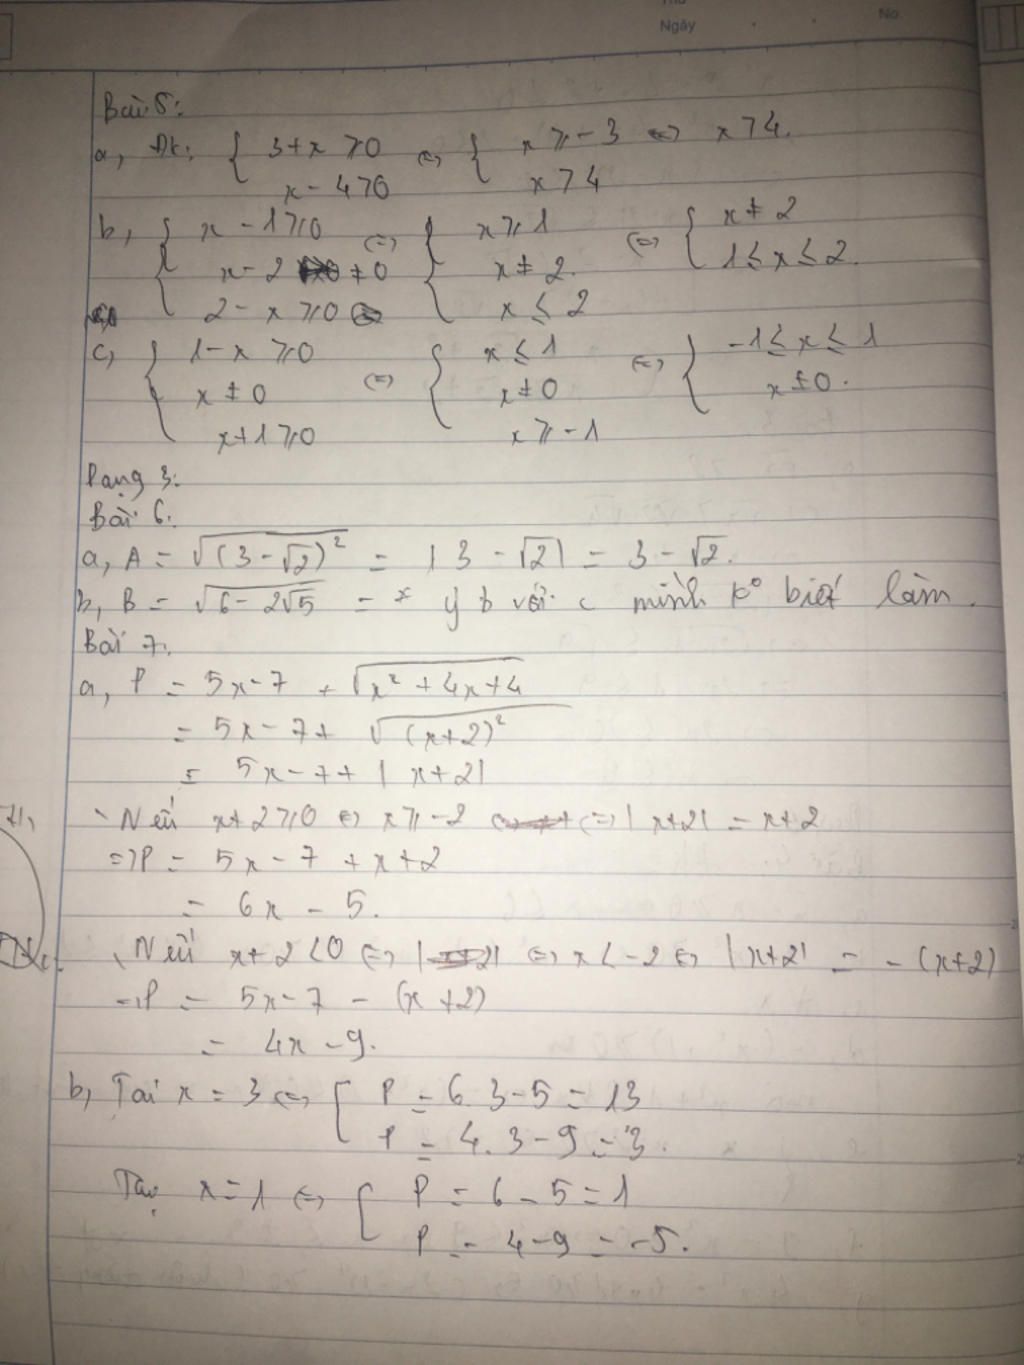 Thứ
Ngày
No
Bài 5:
a, Đk: { 3+x ⩾ 0 ⇔ { x ⩾ -3 ⇔ x > 4.
x - 4 > 0 x > 4
b, { x - 1 ⩾ 0 ⇔ { x ⩾ 1 ⇔ { x ≠ 2
x - 2 ≠ 0 x ≠ 2. 1 ≤ x ≤ 2.
2 - x ⩾ 0 x ≤ 2
c, { 1 - x ⩾ 0 ⇔ { x ≤ 1 ⇔ { -1 ≤ x ≤ 1
x ≠ 0 x ≠ 0 x ≠ 0.
x+1 ⩾ 0 x ⩾ -1
Dạng 3:
Bài 6:
a, A = √(3-√2)² = |3 - √2| = 3 - √2.
b, B = √6 - 2√5 = * ý b với c mình k° biết làm.
Bài 7:
a, P = 5x-7 + √x² + 4x+4
= 5x - 7 + √(x+2)²
= 5x - 7 + |x+2|
Nếu x+2 ⩾ 0 ⇔ x ⩾ -2 ⇔ |x+2| = x+2
⇒ P = 5x - 7 + x+2
= 6x - 5.
Nếu x+2 < 0 ⇔ x < -2 ⇔ |x+2| = -(x+2)
⇒ P = 5x-7 - (x+2)
= 4x - 9.
b, Tại x = 3 ⇔ [ P = 6.3-5 = 13
P = 4.3-9 = 3.
Tại x = 1 ⇔ [ P = 6 - 5 = 1
P = 4-9 = -5.